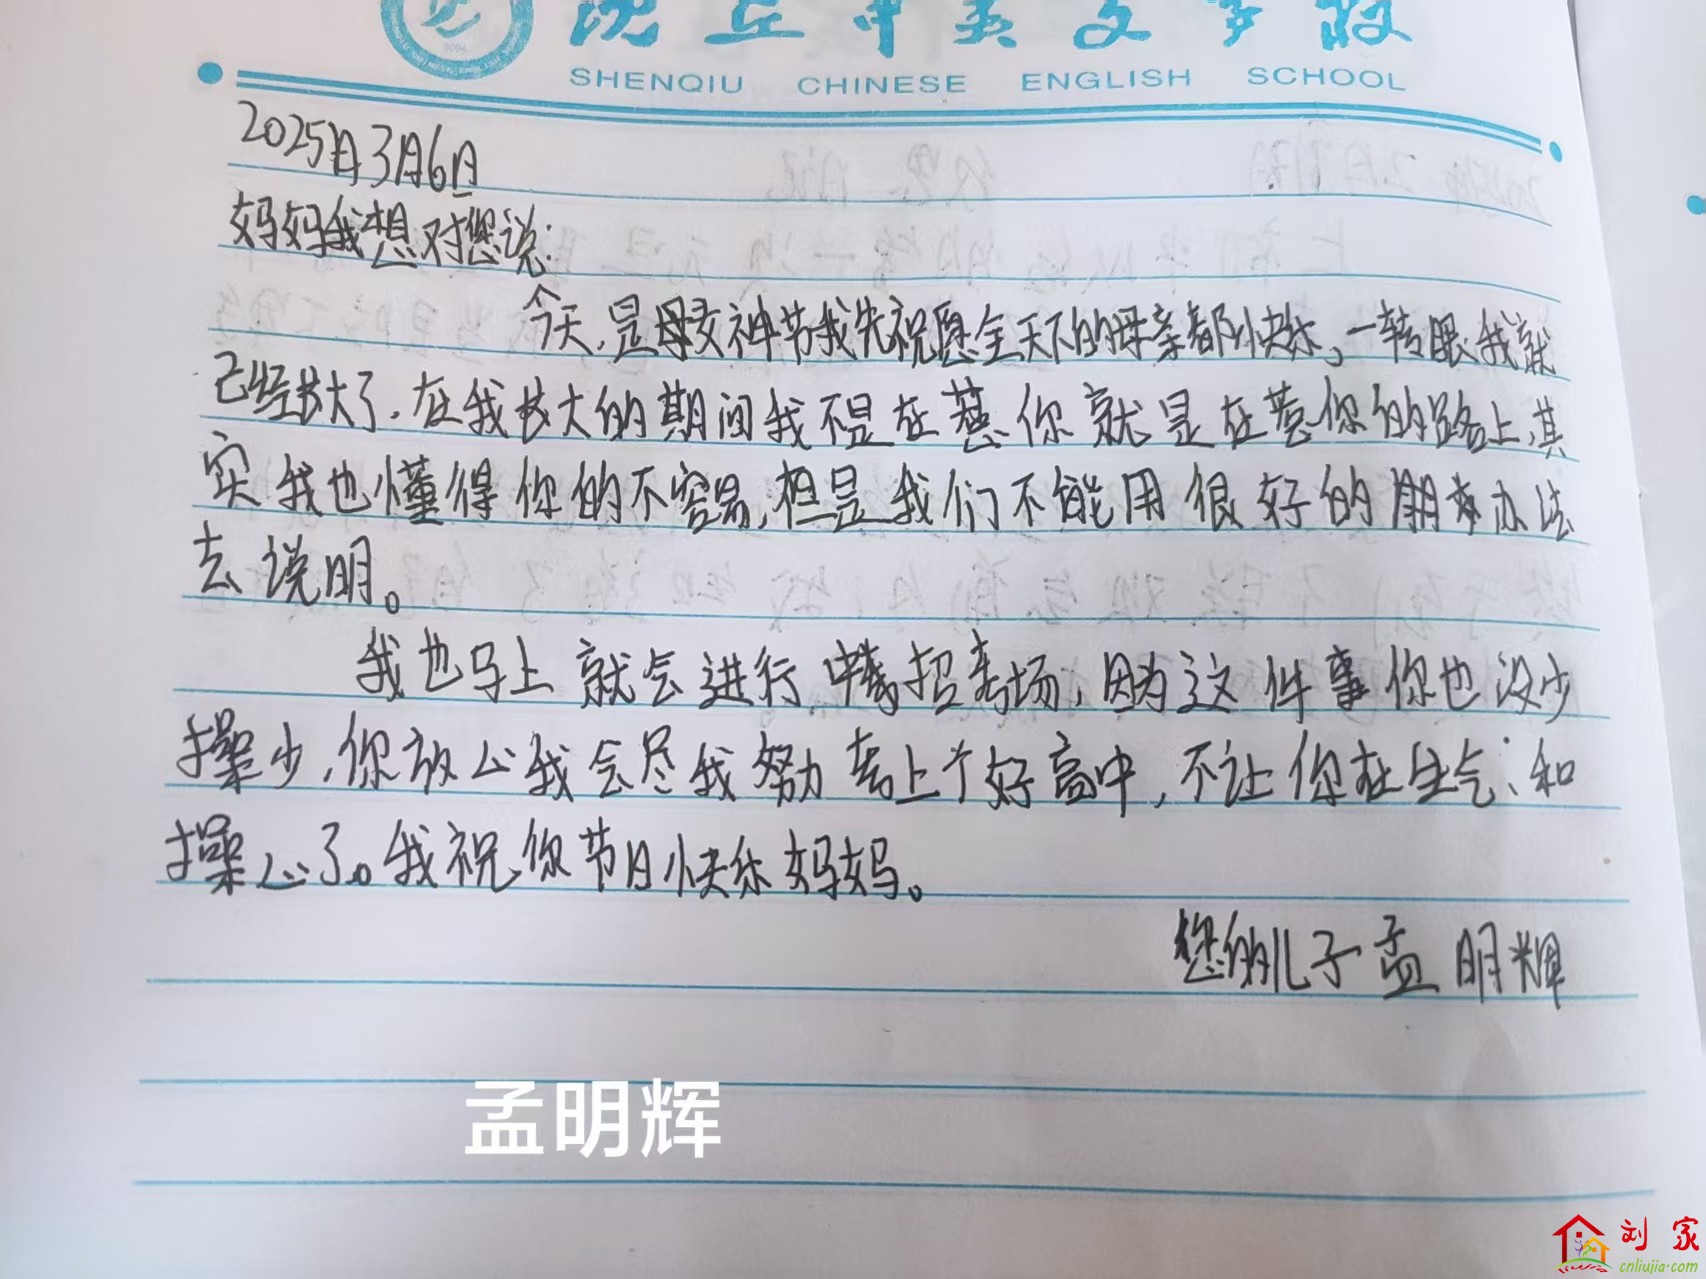 沈丘中英文学校
SHENQIU CHINESE ENGLISH SCHOOL
2025年3月6日
妈妈我想对您说:
今天,是母女神节我先祝愿全天下的母亲都快乐,一转眼我就
已经长大了.在我长大的期间我不是在惹你就是在惹你的路上,其
实我也懂得你的不容易,但是我们不能用很好的办法
去说明。
我也马上就会进行中招考场,因为这件事你也没少
操少,你放心我会尽我努力考上个好高中,不让你在生气,和
操心了。我祝你节日快乐妈妈。
您的儿子孟明辉
孟明辉
刘家
cnliujia.com